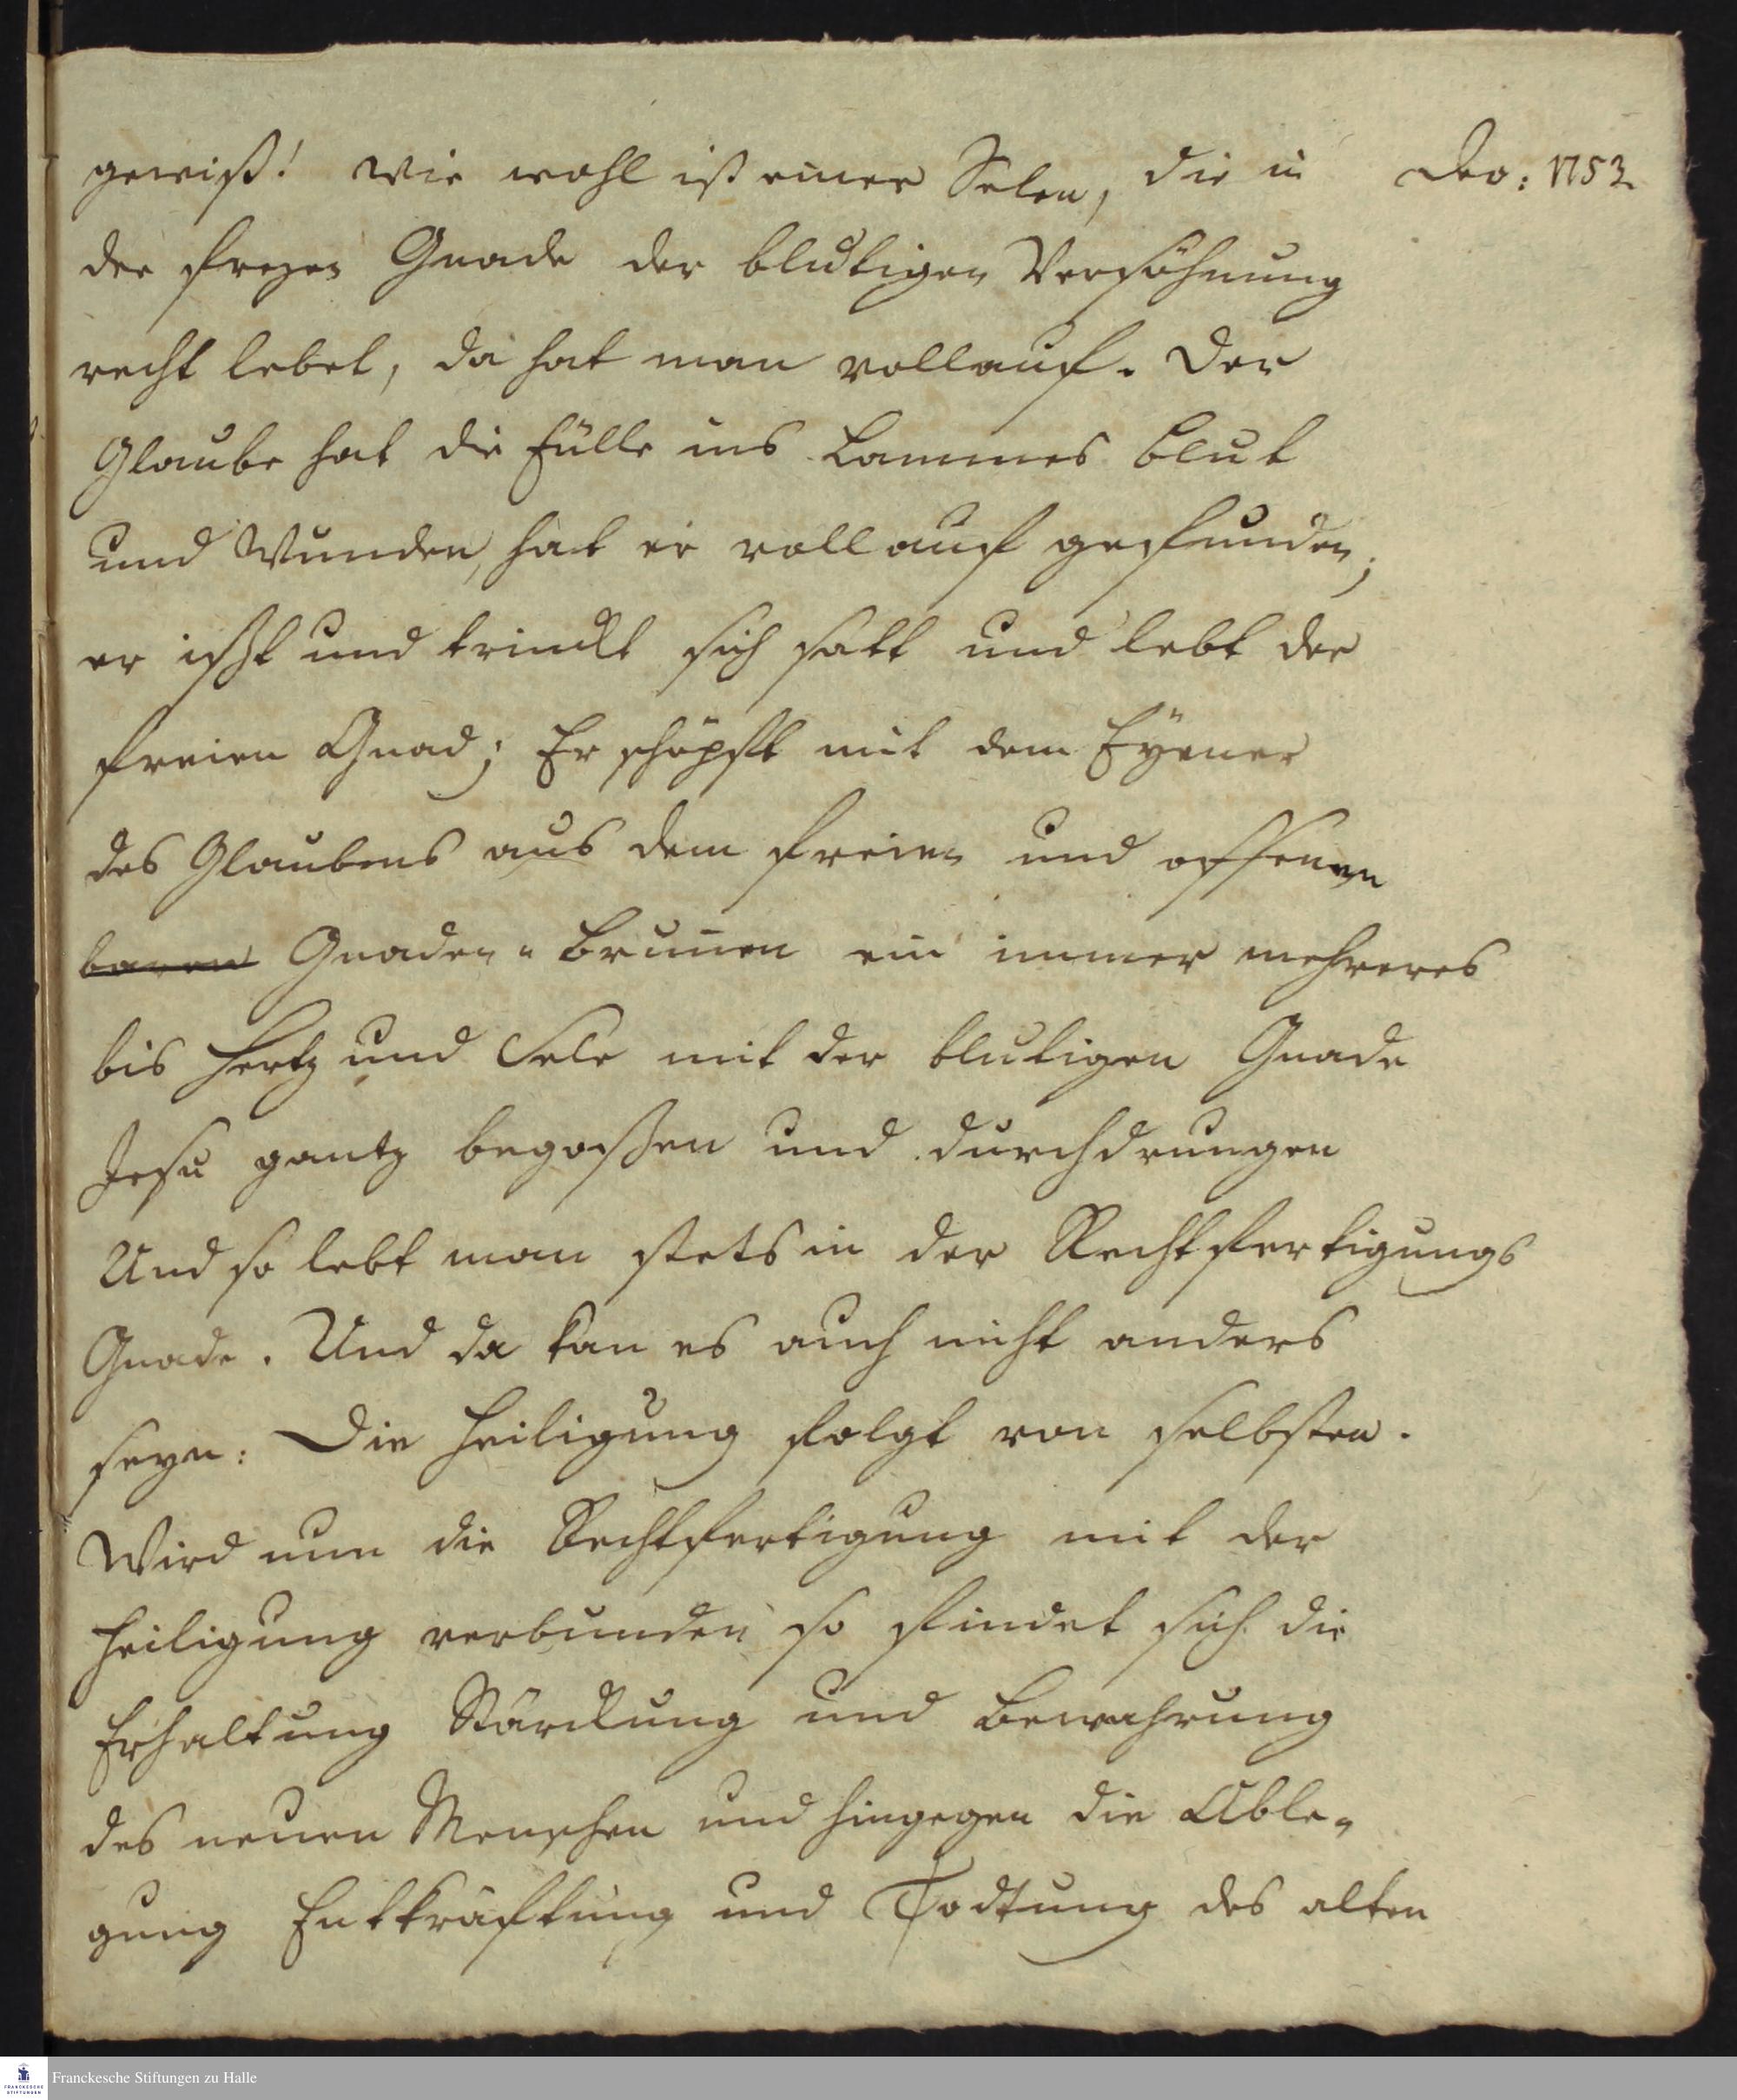 gewiß! wie wohl ist einer Selen, die in
Dec: 1753.
der freyen Gnade der blutigen Versöhnung
recht lebet, da hat man vollauf. Der
Glaube hat die Fülle ins Lammes Blut
und Wunden, hat er vollauf gefunden;
er ißt und trinckt sich satt und lebt der
freien Gnad; Er schöpft mit dem Eymer
des Glaubens aus dem freien und offenen
baren Gnaden-Brunnen ein immer mehreres
bis Hertz und Sele mit der blutigen Gnade
Jesu gantz begoßen und durchdrungen
Und so lebt man stets in der Rechtfertigungs
Gnade. Und da kan es auch nicht anders
seyn: Die Heiligung folgt von selbsten.
Wird nun die Rechtfertigung mit der
Heiligung verbunden so findet sich die
Erhaltung Stärckung und Bewahrung
des neuen Menschen und hingegen die Able-
gung Entkräftung und Todtung des alten
Franckesche Stiftungen zu Halle
FRANCKESCHE
STIFTUNGEN